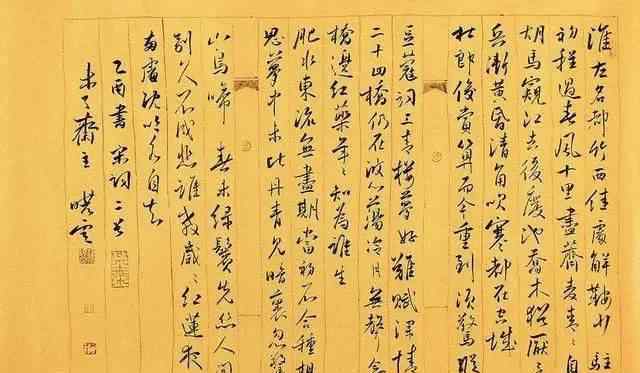 淮左名都竹西佳處解鞍少駐
初程過春風十里盡薺麥青々自
胡馬窺江去後廢池喬木猶厭言
兵漸黃昏清角吹寒都在空城
杜郎俊賞算而今重到須驚縱
荳蔻詞工青樓夢好難賦深情
二十四橋仍在波心蕩冷月無聲念
橋邊紅藥年々知為誰生
肥水東流無盡期當初不合種相
思夢中未比丹青見暗裏忽驚
山鳥啼 春未綠鬢先絲人間
別久不成悲誰教歲々紅蓮夜
兩處沈吟各自知
乙酉書宋詞二首
齋主